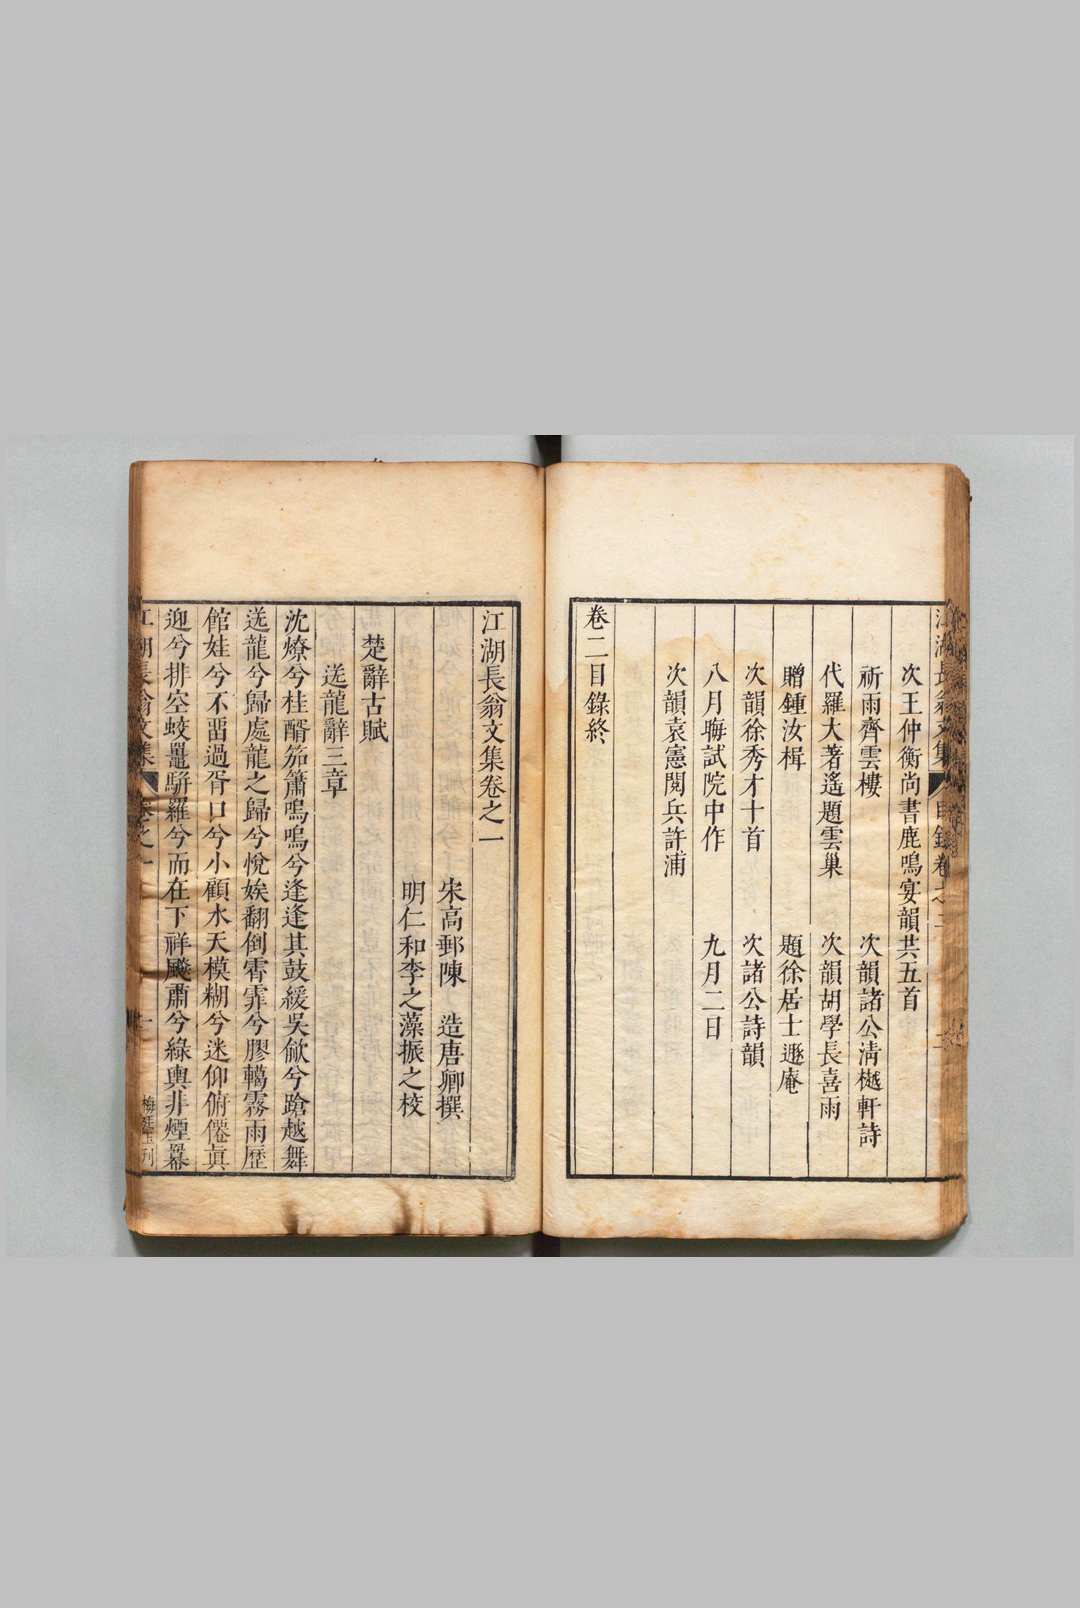 次王仲衡尚書鹿鳴宴韻共五首
祈雨齊雲樓　次韻諸公清樾軒詩
代羅大著遙題雲巢　次韻胡學長喜雨
贈鍾汝楫　題徐居士遯庵
次韻徐秀才十首　次諸公詩韻
八月晦試院中作　九月二日
次韻袁憲閱兵許浦
卷二目錄終
江湖長翁文集卷之一
宋高郵陳　造唐卿撰
明仁和李之藻振之校
楚辭古賦
送龍辭三章
沈燎兮桂醑笳簫嗚嗚兮逢逢其鼓緩吳歈兮蹌越舞
送龍兮歸處龍之歸兮悅娭翻倒霄霏兮膠轕霧雨歷
館娃兮不畱過胥口兮小顧水天模糊兮迷仰俯僊眞
迎兮排空蛟鼉駢羅兮而在下祥飈肅兮綠輿非煙羃
江湖長翁文集　卷之一　一